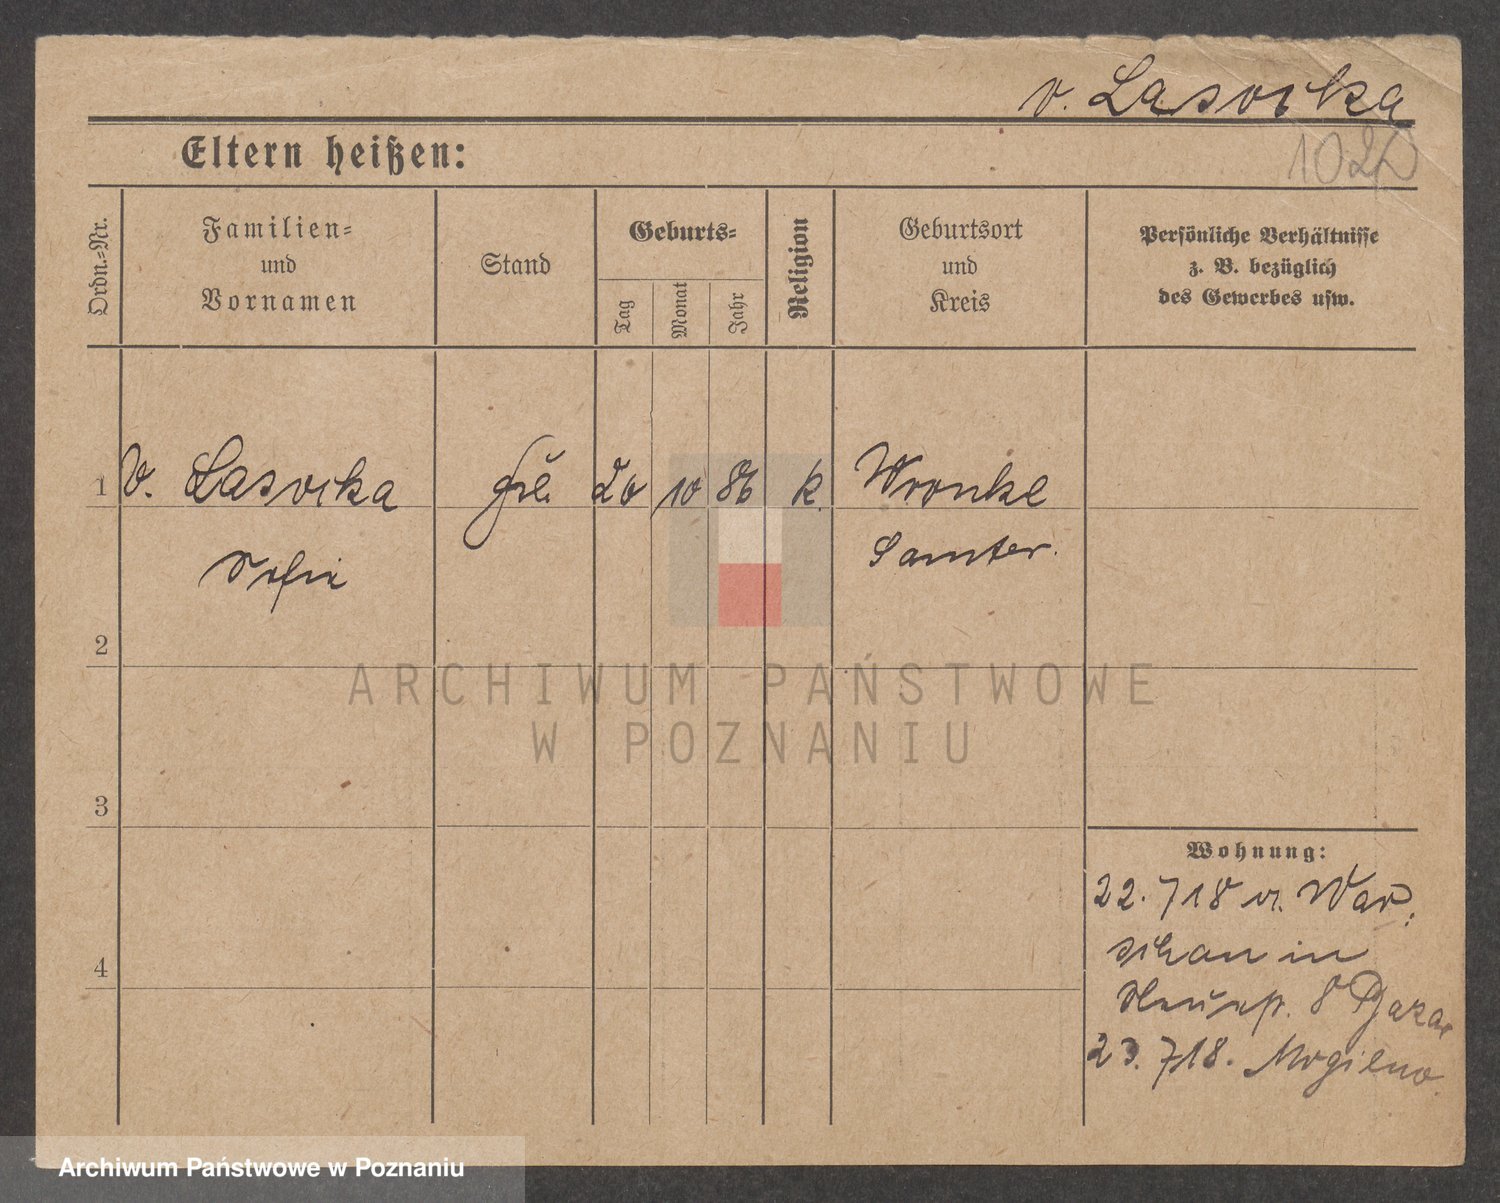 v. Lasocka
102
Eltern heißen:
Ordn.-Nr.
Familien-
und
Vornamen
Stand
Geburts-
Tag
Monat
Jahr
Religion
Geburtsort
und
Kreis
Persönliche Verhältnisse
z. B. bezüglich
des Gewerbes usw.
1 v. Lasocka 20 10 86 k. Wronke
Samter.
2
3
4
Wohnung:
22. 7 18 v. War-
schau in
8
23. 7 18. Mogilno
ARCHIWUM PAŃSTWOWE
W POZNANIU
Archiwum Państwowe w Poznaniu